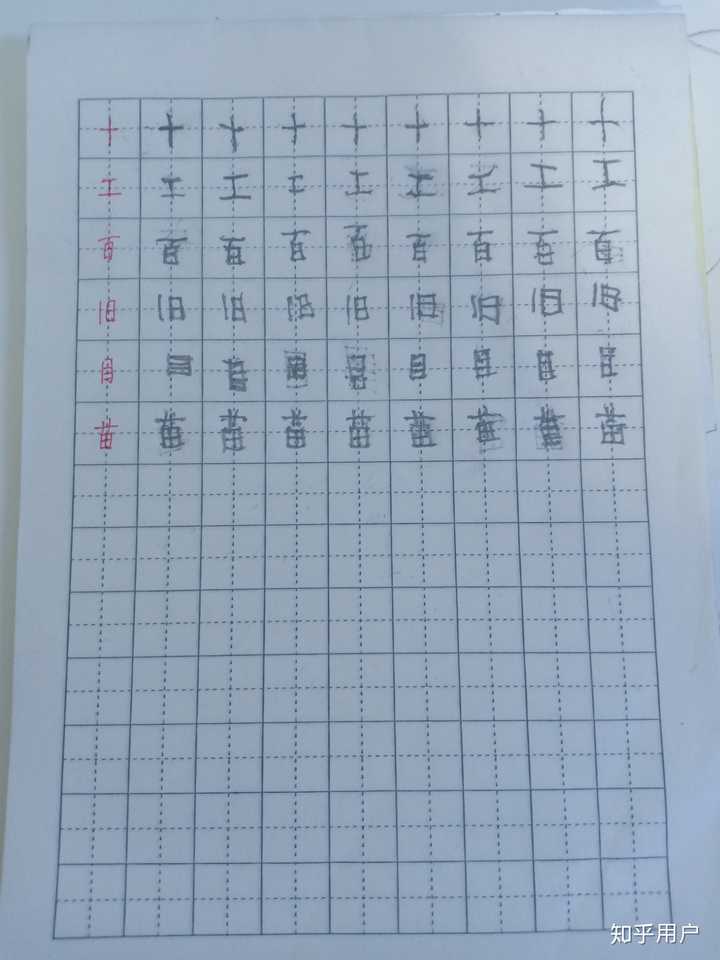 十 十 十 十 十 十 十 十 十
工 工 工 工 工 工 工 工 工
百 百 百 百 百 百 百 百 百
旧 旧 旧 旧 旧 旧 旧 旧 旧
苗 苗 苗 苗 苗 苗 苗 苗 苗
知乎用户